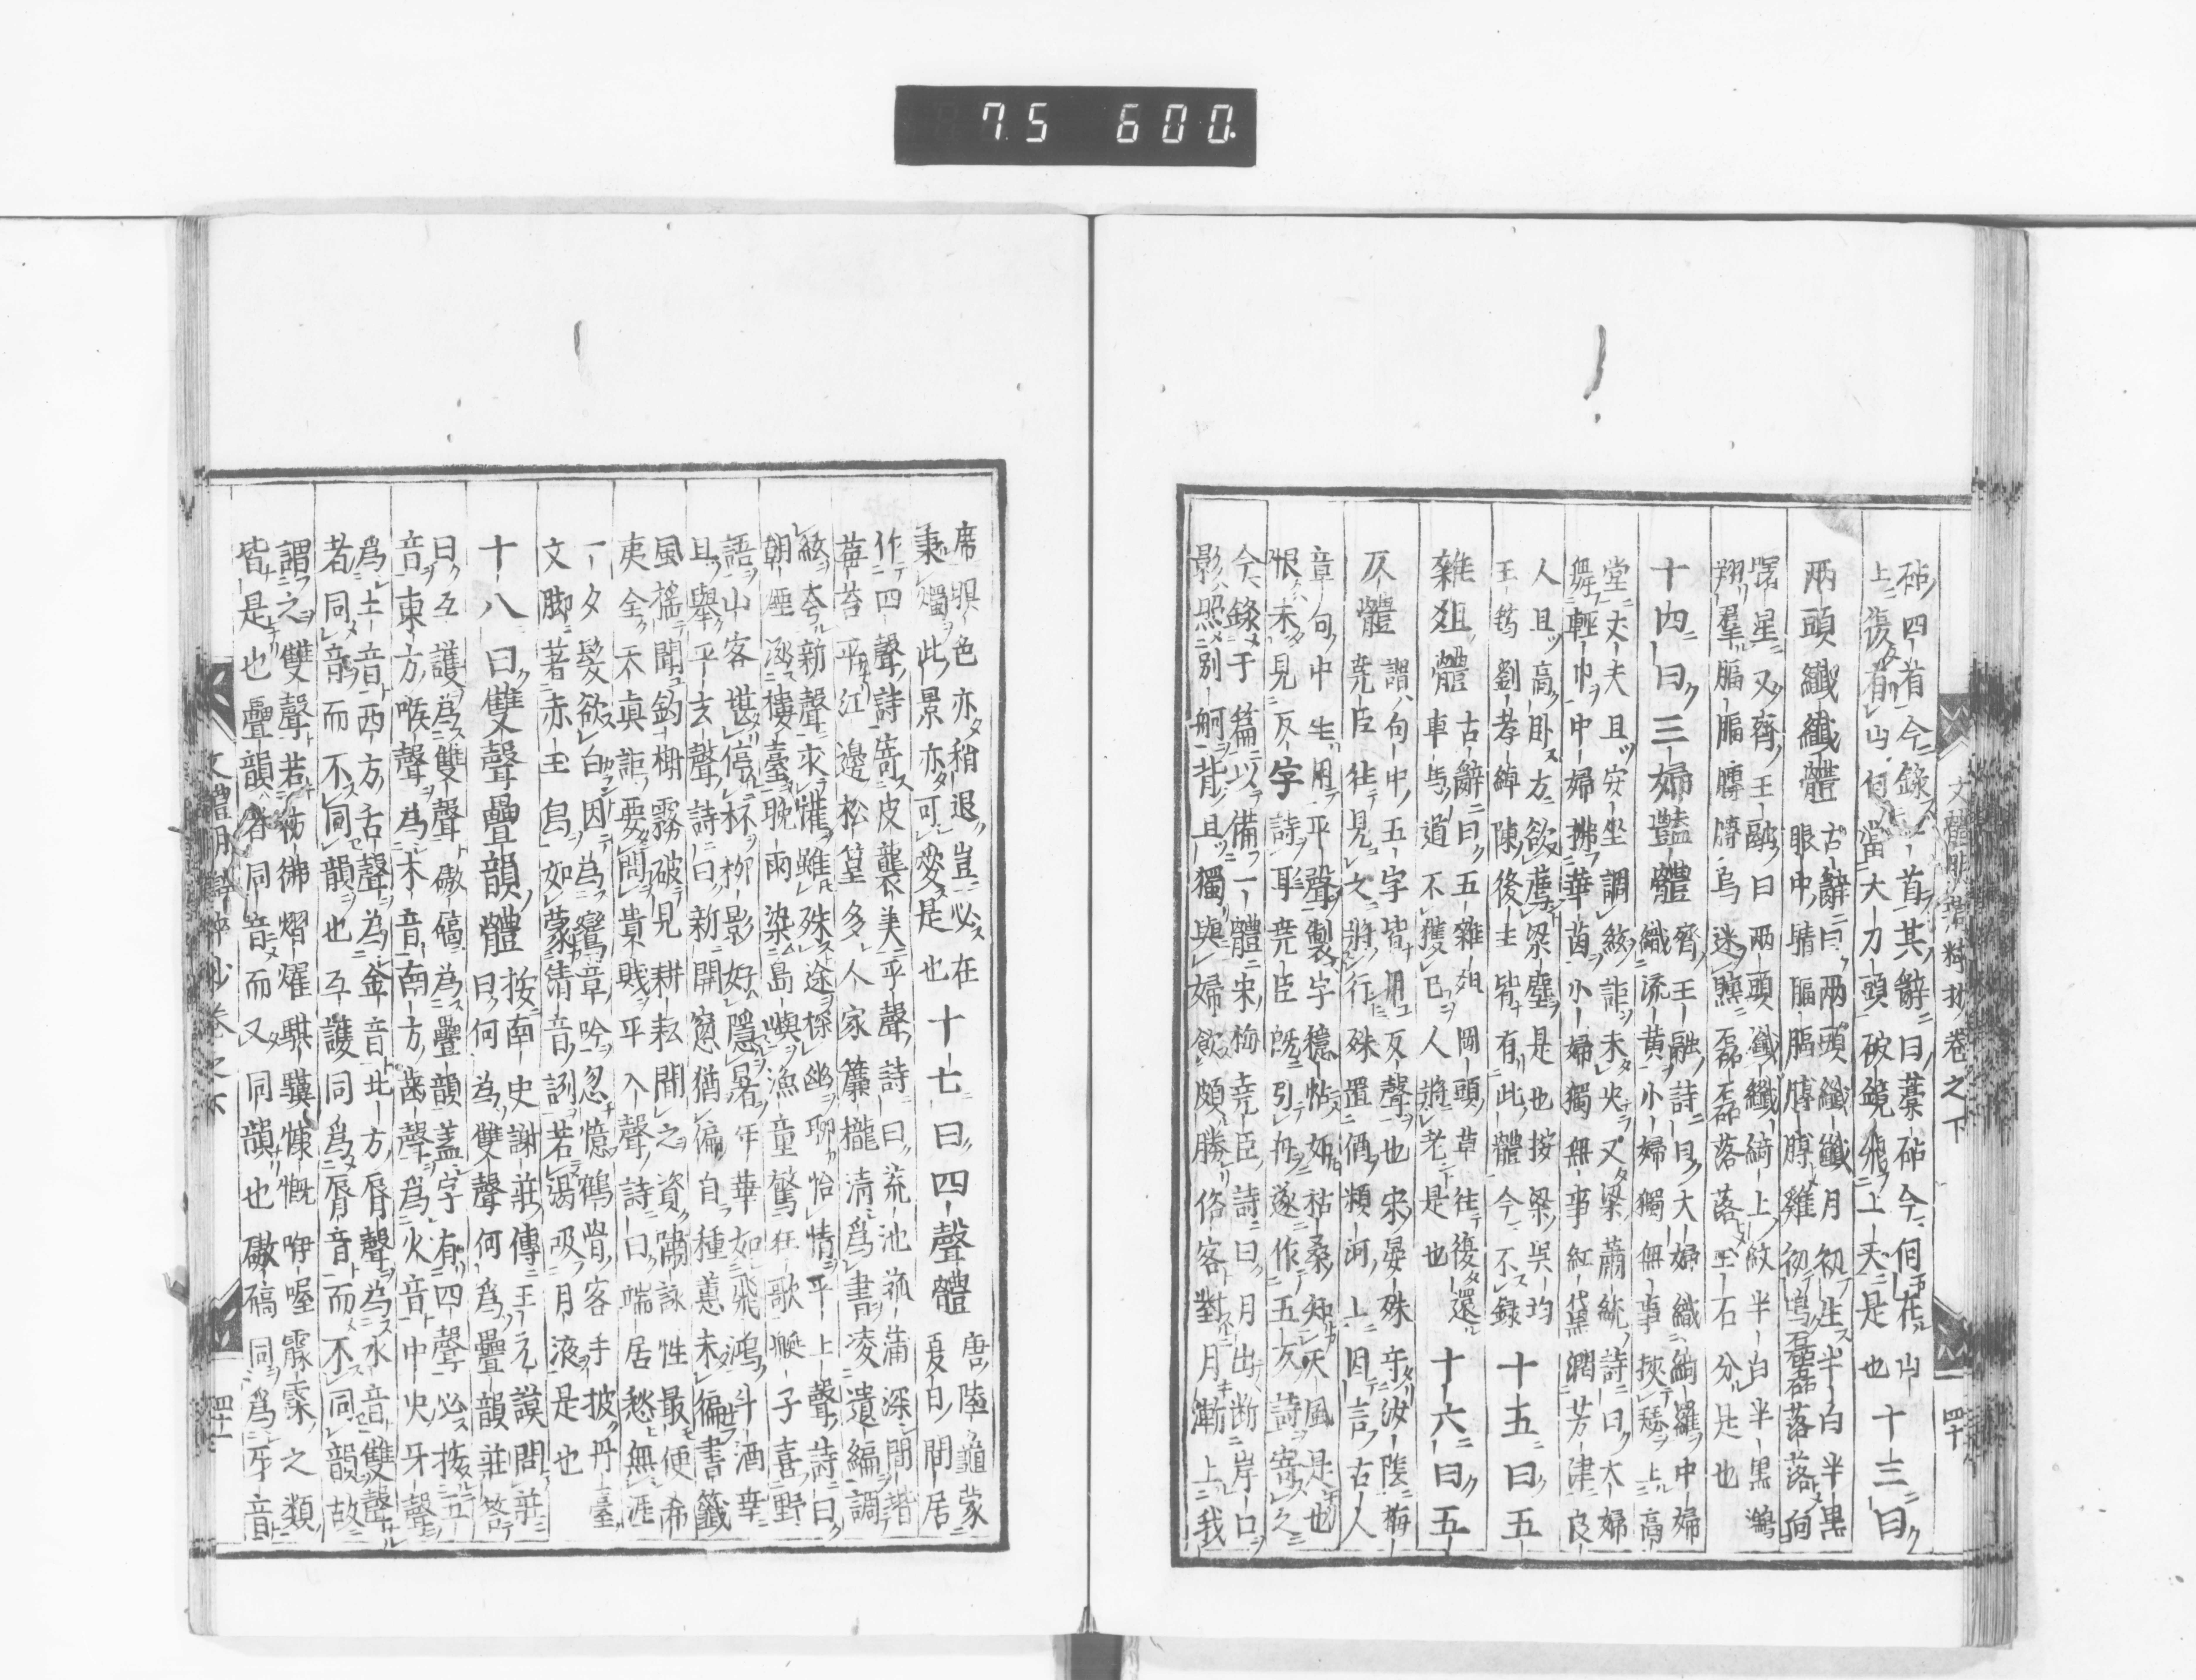 75 600.
文體明辯粹抄卷之下 四十
砧四首今錄一首其辭曰藁砧今何在山
上復有山何當大刀頭破鏡飛上天是也 十三曰
兩頭纖纖體 古辭曰兩頭纖纖月初生半白半黑
眼中睛腷腷膊膊雞初鳴磊磊落落向
曙星又齊王融曰兩頭纖纖綺上紋半白半黑鵷
翔羣腷腷膊膊烏迷曛磊磊落落玉石分是也
十四曰三婦豔體 齊王融詩曰大婦織綺羅中婦
織流黃小婦獨無事挾瑟上高
堂丈夫且安坐調絃詎未央又梁蕭統詩曰大婦
舞輕巾中婦拂華茵小婦獨無事紅黛潤芳津良
人且高臥方欲薦梁塵是也按梁吳均
王筠劉孝綽陳後主皆有此體今不錄 十五曰五
雜俎體 古辭曰五雜俎岡頭草往復還
車馬道不獲已人將老是也 十六曰五
仄體 謂句中五字皆用仄聲也宋晏殊守汝陰梅
堯臣往見之將行殊置酒潁河上因言古人
章句中全用平聲製字穩帖如枯桑知天風是也
恨未見仄字詩耳堯臣既引舟遂作五仄詩寄之
今錄于篇以備一體宋梅堯臣詩曰月出斷岸口
影照別舸背且獨與婦飲頗勝俗客對月漸上我
席暝色亦稍退豈必在
秉燭此景亦可愛是也 十七曰四聲體 唐陸龜蒙
夏日閒居
作四聲詩寄皮襲美平聲詩曰荒池菰蒲深閒堦
莓苔平江邊松篁多人家簾櫳清爲書凌遺編調
絃夸新聲求懽雖殊途探幽聊怡情平上聲詩曰
朝煙涵樓臺晚雨染島嶼漁童驚狂歌艇子喜野
語山客堪停杯柳影好隱暑年華如飛鴻斗酒幸
且舉平去聲詩曰新開窻猶偏自種蕙未徧書籤
風搖聞釣榭霧破見耕耘閒之資嘯詠性最便希
夷全天眞詎要問貴賤平入聲詩曰端居愁無涯
一夕髮欲白因爲鸞章吟忽憶鶴骨客手披丹臺
文脚著赤玉舄如蒙清音訓若渴吸月液是也
十八曰雙聲疊韻體 按南史謝莊傳王玄謨問莊
曰何為雙聲何爲疊韻莊答
曰互護爲雙聲磝碻為疊韻盖字有四聲必按五
音東方喉聲為木音南方齒聲爲火音中央牙聲
爲土音西方舌聲為金音北方脣聲為水音雙聲
者同音而不同韻也互護同爲脣音而不同韻故
謂之雙聲若彷彿熠燿騏驥慷慨咿喔霢霂之類
皆是也疊韻者同音而又同韻也磝碻同爲牙音
文體明辯粹抄卷之下 四十一